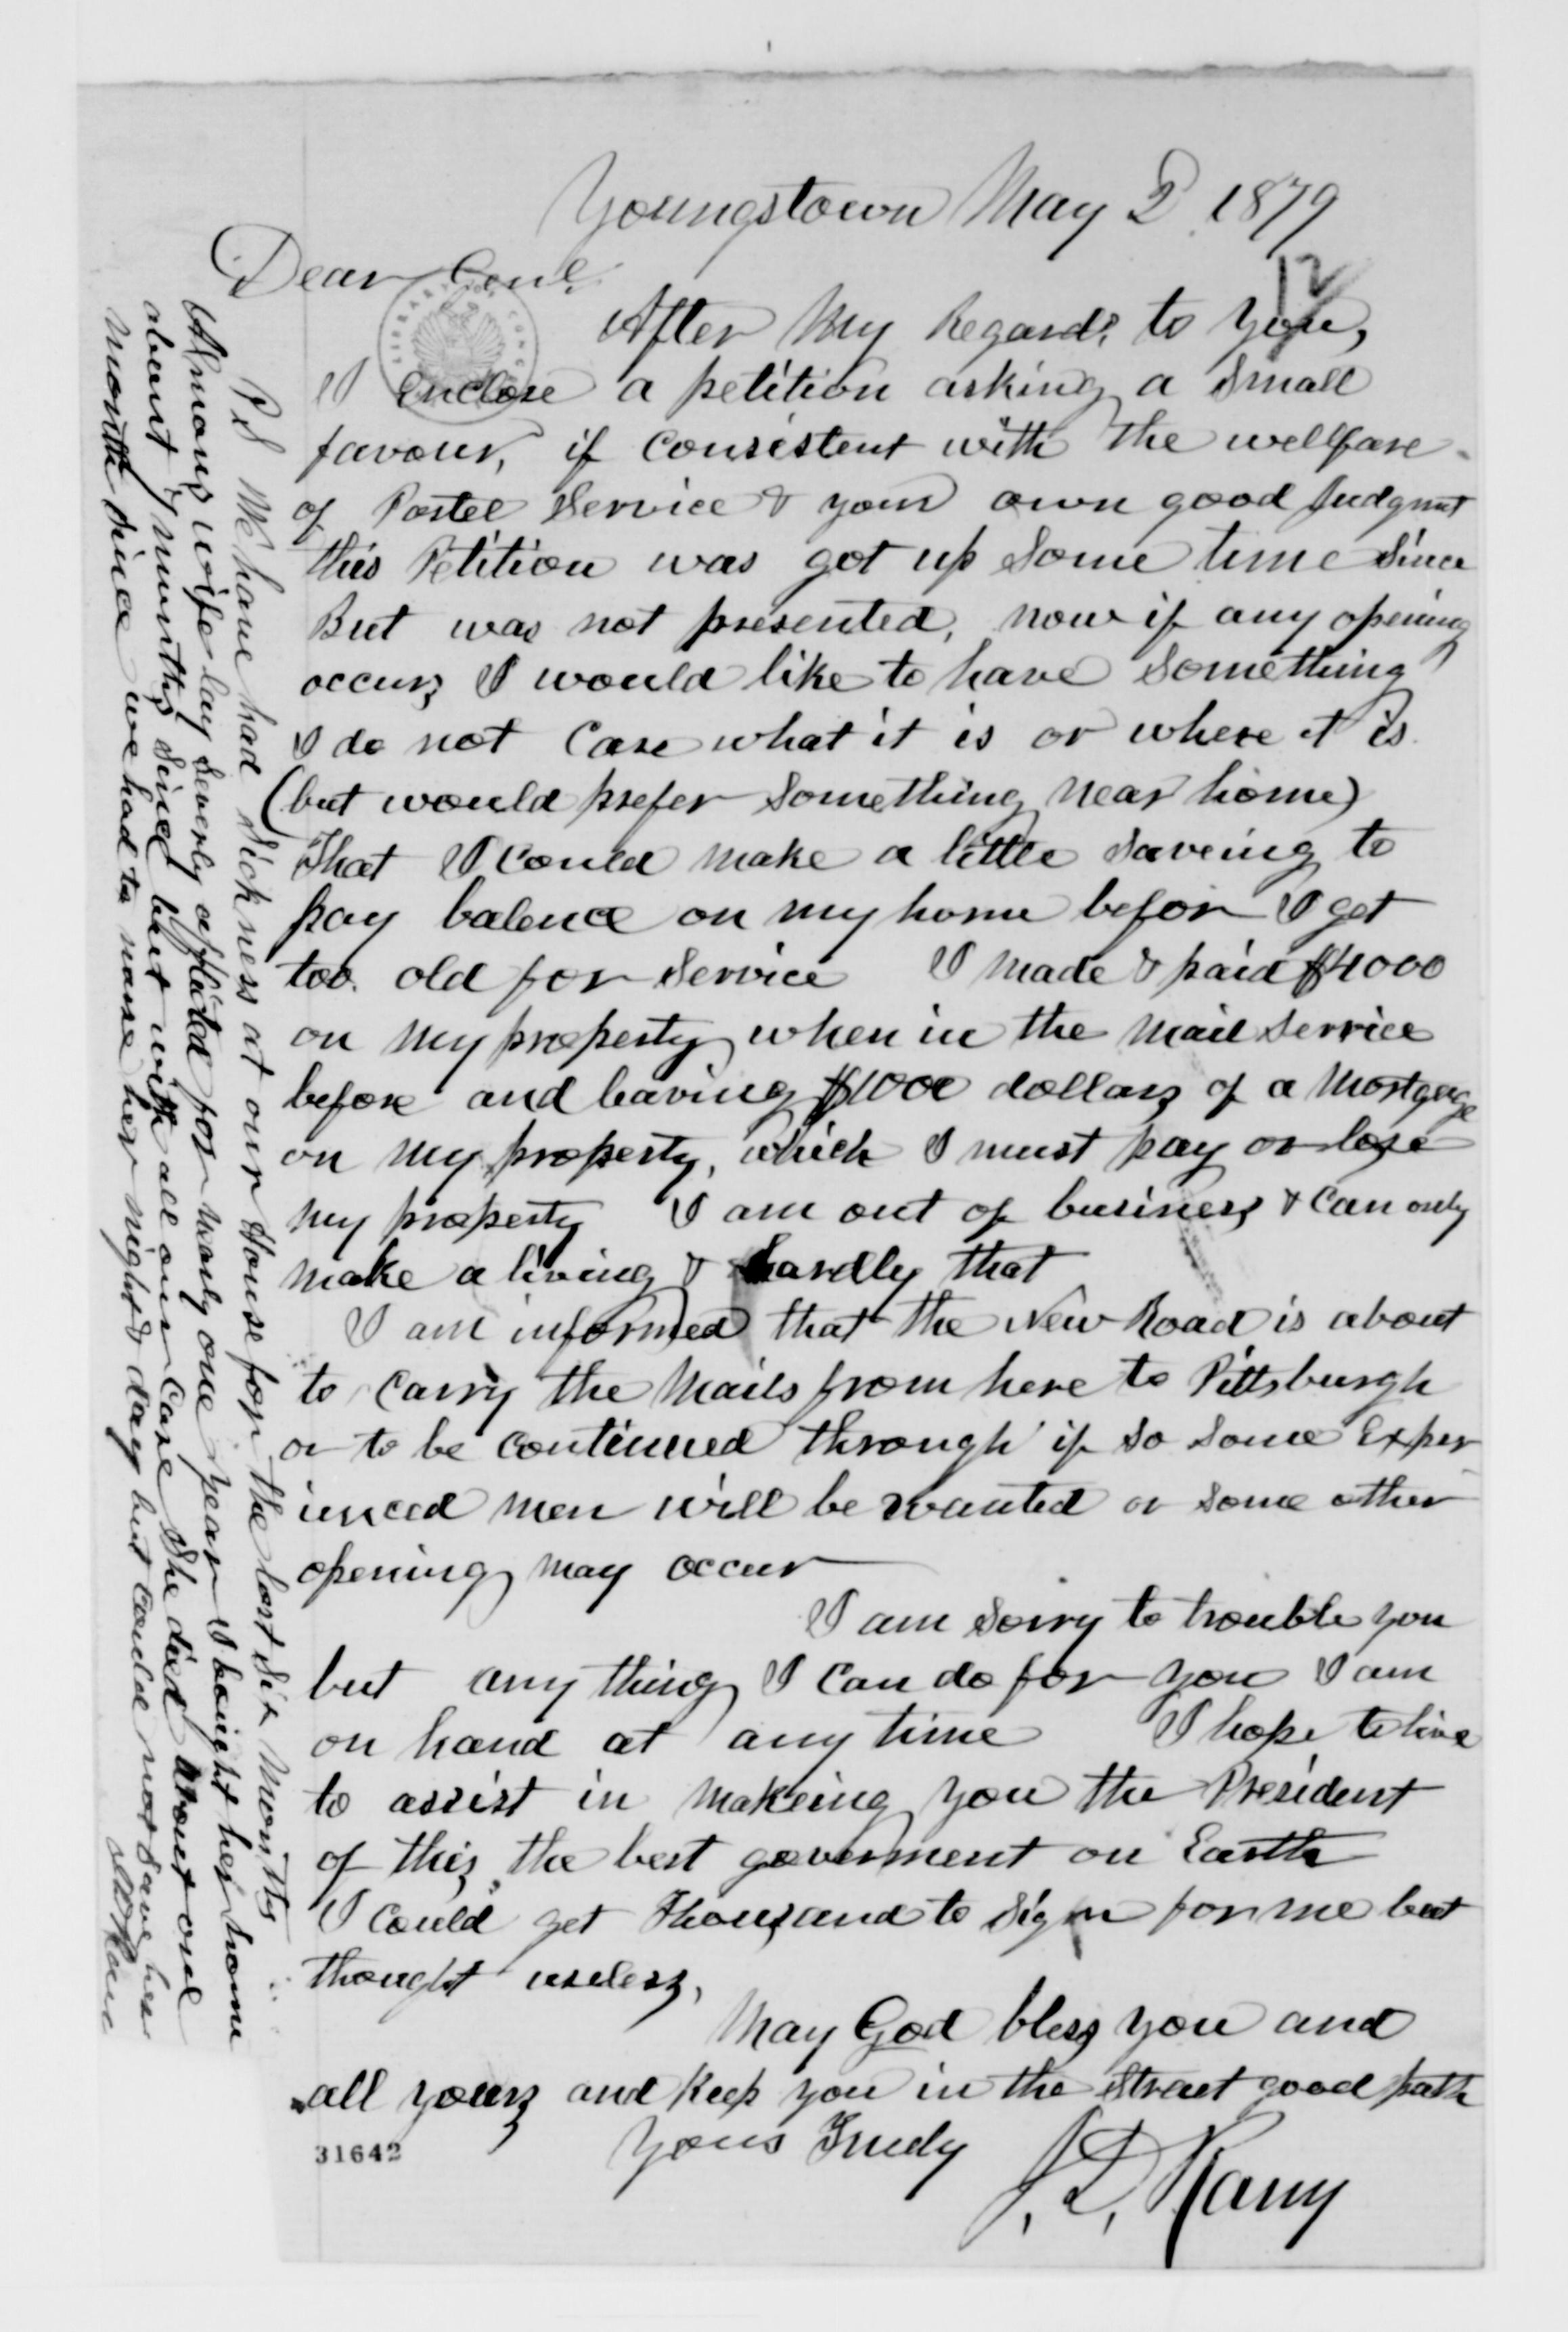 Youngstown May 2 1879
12
Dear Genl.
After My Regards to you,
I enclose a petition asking a small
favour, if consistent with the wellfare
of Postel Service & your own good Judgmt
this Petition was got up some time since
But was not presented, now if any opening
occurs I would like to have something
I do not Care what it is or where it is
(but would prefer something near home)
That I could make a little saveing to
pay balence on my home befor I get
too old for service I made & paid $4000
on my property when in the mail service
before and leaving $1000 dollars of a Mortgage
on my property, which I must pay or lose
my property I am out of business & Can only
make a living & hardly that
I am informed that the New Road is about
to carry the Mails from here to Pittsburgh
or to be continued through if so some Exper
ienced men will be wanted or some other
opening may occur
I am sorry to trouble you
but any thing I can do for you I am
on hand at any time I hope to live
to assist in makeing you the President
of this the best goverment on Earth
I could get Thousand to sign for me but
thought useless,
May God bless you and
all yours and Keep you in the Strait good path
Yours Truely
31642
P.S We have had sickness at our House for the last six months
Armous wife lay severly afflicted for nearly one year I bought her home
about 7 months since but with all our Care she died about one
month since we had to nurse her night & day but could not save her